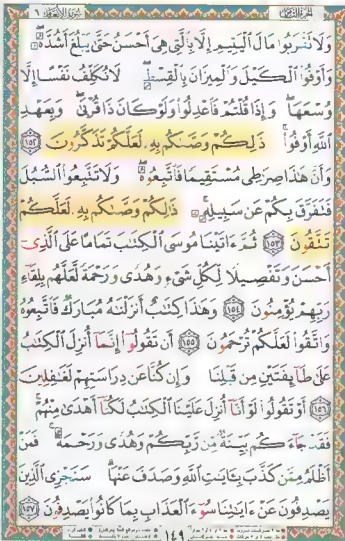 الجزء الثامن سورة الأنعام ٦
وَلَا تَقْرَبُوا مَالَ الْيَتِيمِ إِلَّا بِالَّتِي هِيَ أَحْسَنُ حَتَّىٰ يَبْلُغَ أَشُدَّهُ
وَأَوْفُوا الْكَيْلَ وَالْمِيزَانَ بِالْقِسْطِ لَا نُكَلِّفُ نَفْسًا إِلَّا
وُسْعَهَا وَإِذَا قُلْتُمْ فَاعْدِلُوا وَلَوْ كَانَ ذَا قُرْبَىٰ وَبِعَهْدِ
اللَّهِ أَوْفُوا ذَٰلِكُمْ وَصَّىٰكُم بِهِ لَعَلَّكُمْ تَذَكَّرُونَ ١٥٢
وَأَنَّ هَٰذَا صِرَٰطِي مُسْتَقِيمًا فَاتَّبِعُوهُ وَلَا تَتَّبِعُوا السُّبُلَ
فَتَفَرَّقَ بِكُمْ عَن سَبِيلِهِ ذَٰلِكُمْ وَصَّىٰكُم بِهِ لَعَلَّكُمْ
تَتَّقُونَ ١٥٣ ثُمَّ ءَاتَيْنَا مُوسَى الْكِتَٰبَ تَمَامًا عَلَى الَّذِي
أَحْسَنَ وَتَفْصِيلًا لِّكُلِّ شَيْءٍ وَهُدًى وَرَحْمَةً لَّعَلَّهُم بِلِقَاءِ
رَبِّهِمْ يُؤْمِنُونَ ١٥٤ وَهَٰذَا كِتَٰبٌ أَنزَلْنَٰهُ مُبَارَكٌ فَاتَّبِعُوهُ
وَاتَّقُوا لَعَلَّكُمْ تُرْحَمُونَ ١٥٥ أَن تَقُولُوا إِنَّمَا أُنزِلَ الْكِتَٰبُ
عَلَىٰ طَائِفَتَيْنِ مِن قَبْلِنَا وَإِن كُنَّا عَن دِرَاسَتِهِمْ لَغَٰفِلِينَ
١٥٦ أَوْ تَقُولُوا لَوْ أَنَّا أُنزِلَ عَلَيْنَا الْكِتَٰبُ لَكُنَّا أَهْدَىٰ مِنْهُمْ
فَقَدْ جَاءَكُم بَيِّنَةٌ مِّن رَّبِّكُمْ وَهُدًى وَرَحْمَةٌ فَمَنْ
أَظْلَمُ مِمَّن كَذَّبَ بِـَٔايَٰتِ اللَّهِ وَصَدَفَ عَنْهَا سَنَجْزِي الَّذِينَ
يَصْدِفُونَ عَنْ ءَايَٰتِنَا سُوءَ الْعَذَابِ بِمَا كَانُوا يَصْدِفُونَ ١٥٧
١٤٩